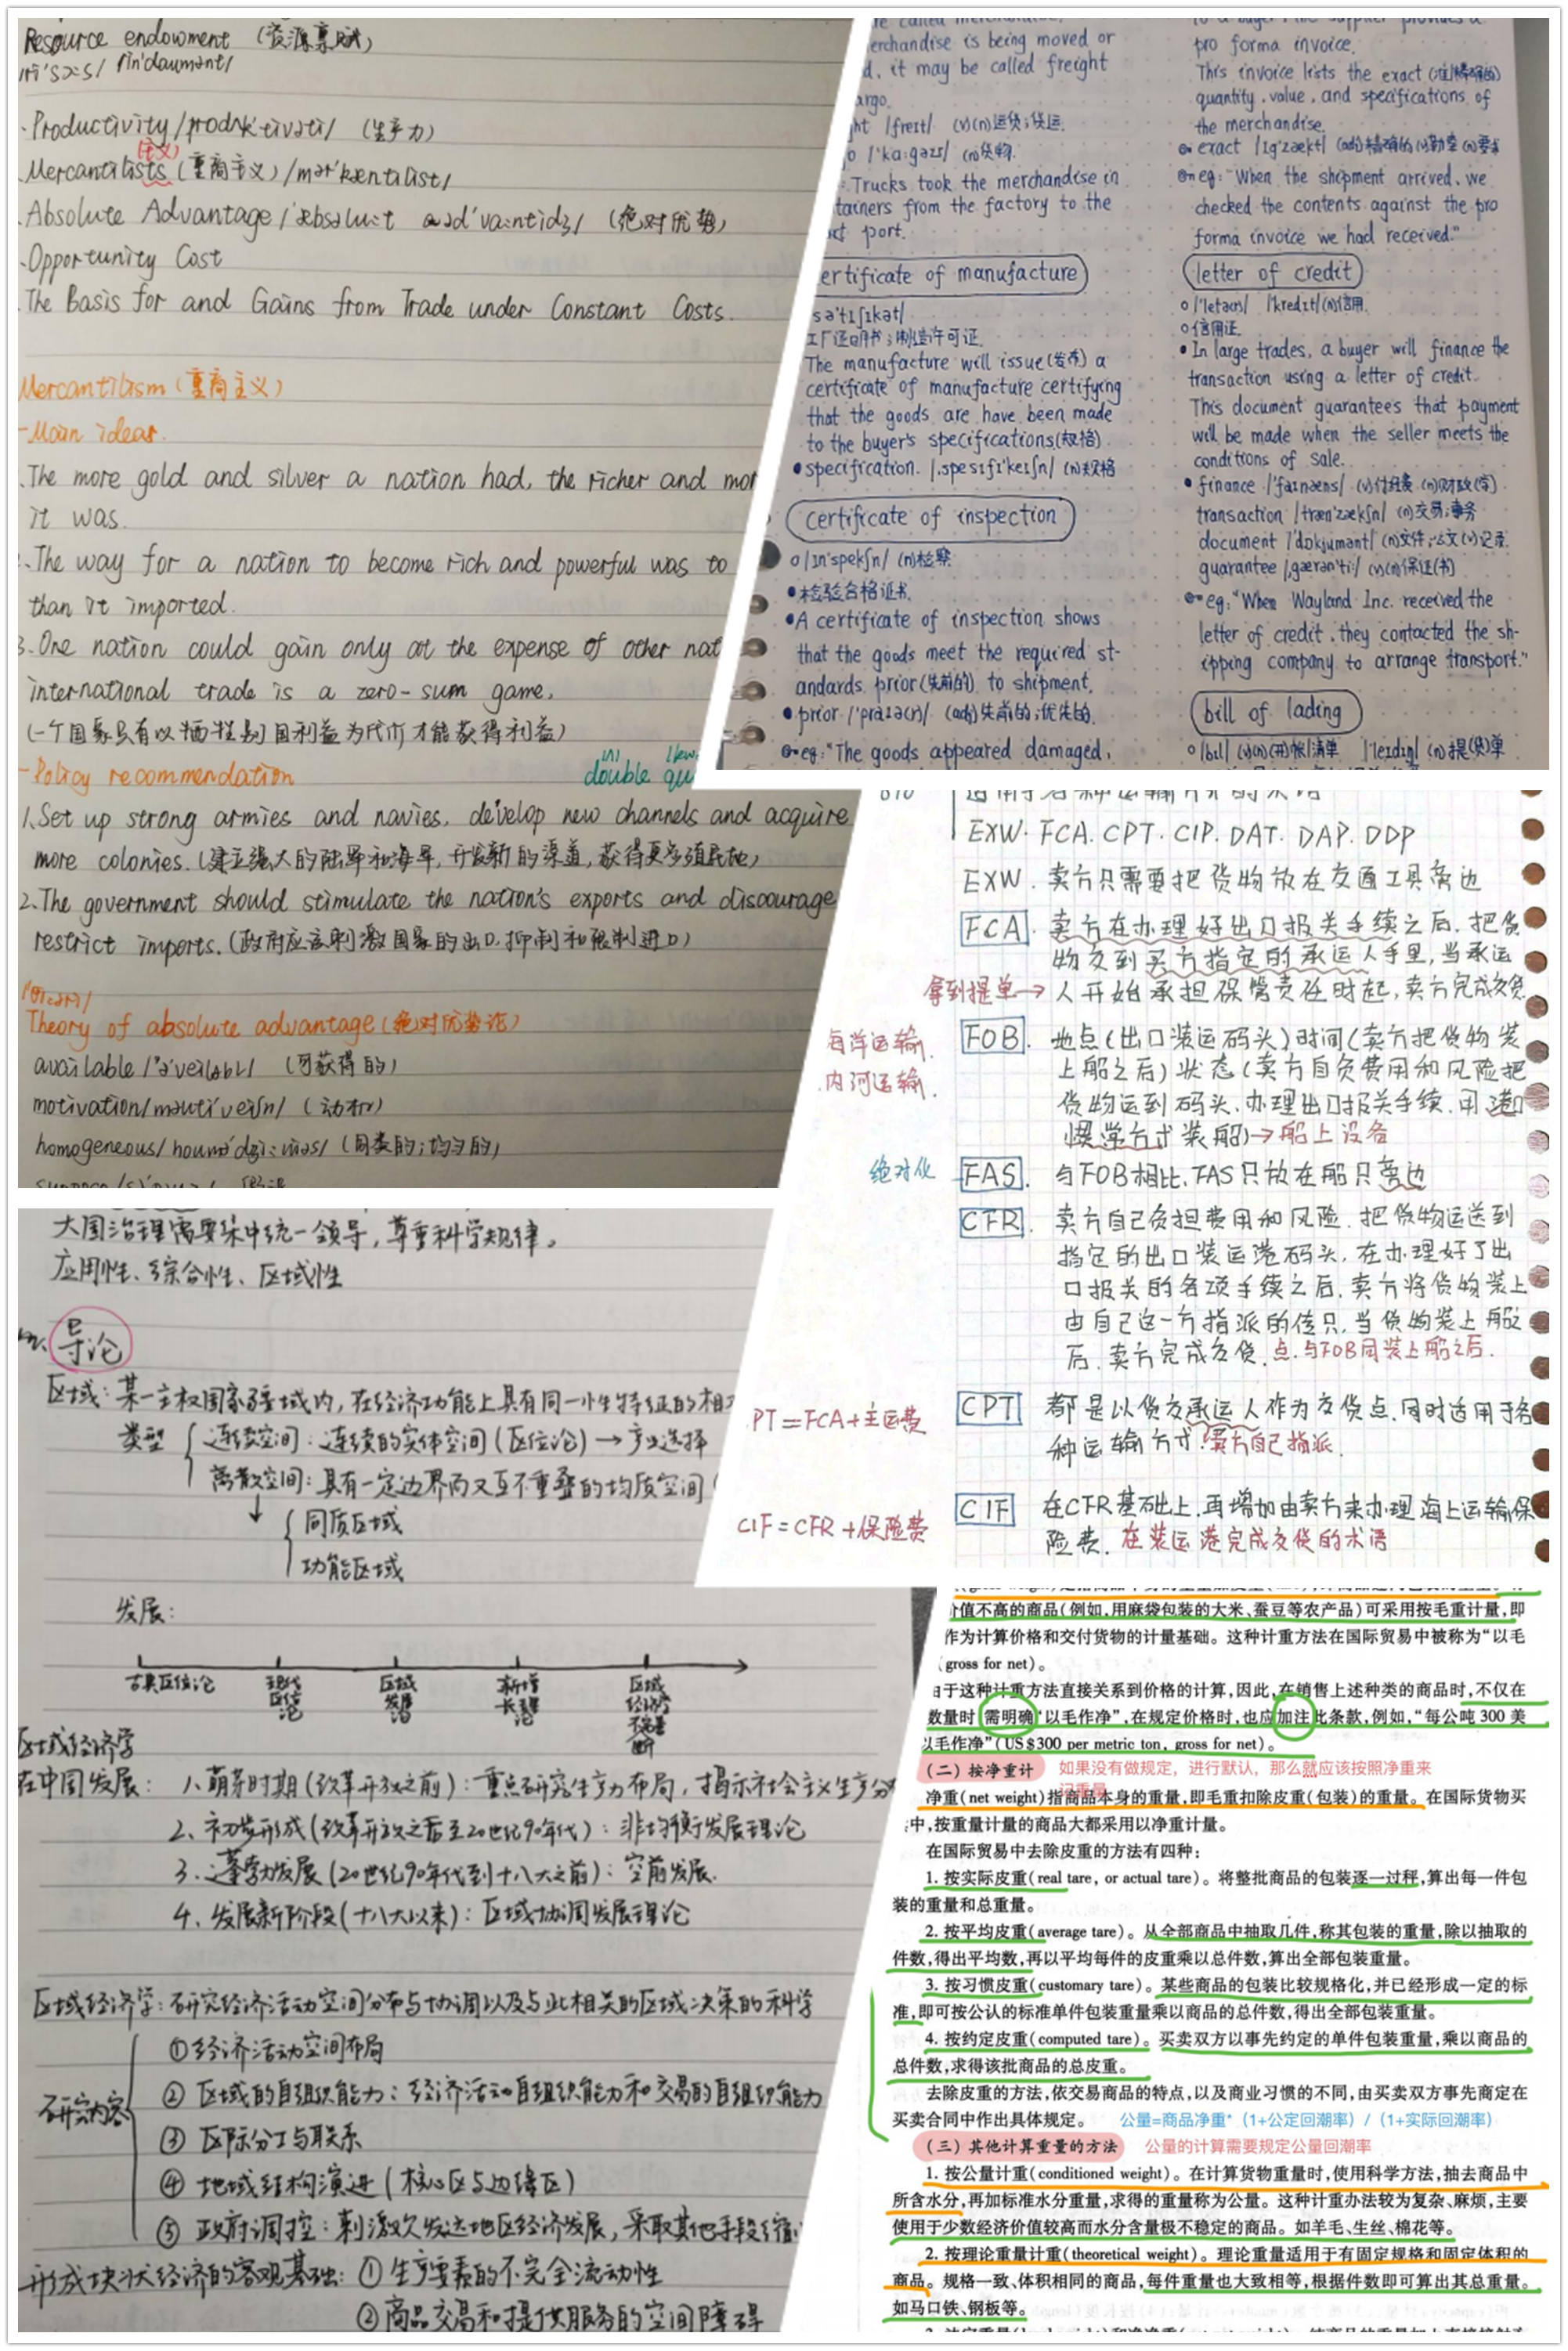 Resource endowment (资源禀赋)
·Productivity /prodʌk'tivəti/ (生产力)
(主义)
·Mercantilists (重商主义) /mər'kæntilist/
·Absolute Advantage /'æbsəlu:t əd'va:ntidʒ/ (绝对优势)
·Opportunity Cost
·The Basis for and Gains from Trade under Constant Costs.
Mercantilism (重商主义)
-Main ideas
The more gold and silver a nation had, the richer and
it was.
The way for a nation to become rich and powerful was to
than it imported.
3. One nation could gain only at the expense of other
international trade is a zero-sum game.
(一个国家只有以牺牲别国利益为代价才能获得利益)
-Policy recommendation
double
1. Set up strong armies and navies, develop new channels and acquire
more colonies. (建立强大的陆军和海军,开发新的渠道,获得更多殖民地)
2. The government should stimulate the nation's exports and discourage
restrict imports. (政府应该刺激国家的出口,抑制和限制进口)
Theory of absolute advantage (绝对优势论)
available /ə'veiləbl/ (可获得的)
motivation /məuti'veiʃn/ (动机)
homogeneous (同类的;均匀的)
erchandise is being moved or
d, it may be called freight
argo.
ht /freɪt/ (v)(n)运货;货运.
o /'ka:gəʊ/ (n)货物.
: Trucks took the merchandise in
tainers from the factory to the
port.
ertificate of manufacture
sə'tɪfɪkət/
工厂证明书;制造许可证.
The manufacture will issue(发布) a
certificate of manufacture certifying
that the goods are have been made
to the buyer's specifications(规格).
•specification. /ˌspesɪfɪ'keɪʃn/ (n)规格
certificate of inspection
o /ɪn'spekʃn/ (n)检察
•检验合格证书.
•A certificate of inspection shows
that the goods meet the required st-
andards prior(先前的) to shipment.
•prior /'praɪə(r)/ (adj)先前的;优先的.
eg: "The goods appeared damaged,
pro forma invoice.
This invoice lists the exact
quantity, value, and specifications of
the merchandise.
exact /ɪg'zækt/ (adj)精确的 (v)勒索
eg: "When the shipment arrived, we
checked the contents against the pro
forma invoice we had received."
letter of credit
o /'letə(r)/ /'kredɪt/ (n)信用.
o 信用证.
•In large trades, a buyer will finance the
transaction using a letter of credit.
This document guarantees that payment
will be made when the seller meets the
conditions of sale.
•finance /'faɪnæns/ (v)付经费 (n)财政(学)
transaction /træn'zækʃn/ (n)交易;事务
document /'dɒkjumənt/ (n)文件;公文 (v)记录
guarantee /ˌgærən'ti:/ (v)(n)保证(书)
eg: "When Wayland Inc. received the
letter of credit, they contacted the sh-
ipping company to arrange transport."
bill of lading
o /bɪl/ 帐|清单 /'leɪdɪŋ/ (n)提(货)单
EXW. FCA. CPT. CIP. DAT. DAP. DDP
EXW. 卖方只需要把货物放在交通工具旁边
FCA. 卖方在办理好出口报关手续之后,把货
物交到买方指定的承运人手里,当承运
拿到提单→ 人开始承担保管责任时起,卖方完成交货
海洋运输.
内河运输.
FOB. 地点(出口装运码头)时间(卖方把货物装
上船之后)状态(卖方自负费用和风险把
货物运到码头.办理出口报关手续.用港口
惯常方式装船)→船上设备
绝对化 FAS. 与FOB相比,FAS只放在船只旁边
CFR. 卖方自己负担费用和风险.把货物运送到
指定的出口装运港码头.在办理好了出
口报关的各项手续之后,卖方将货物装上
由自己这一方指派的传只.当货物装上船之
后.卖方完成交货.点.与FOB同装上船之后.
PT=FCA+主运费
CPT. 都是以货交承运人作为交货点.同时适用于各
种运输方式.卖方自己指派.
CIF=CFR+保险费
CIF. 在CFR基础上.再增加由卖方来办理海上运输保
险费.在装运港完成交货的术语
大国治理需要集中统一领导,尊重科学规律。
应用性、综合性、区域性
导论
区域:某一主权国家疆域内,在经济功能上具有同一性特征的相
类型 连续空间:连续的实体空间(区位论)→产业选择
离散空间:具有一定边界而又互不重叠的均质空间(
同质区域
功能区域
发展:
古典区位论 现代区位论 区域发展论 新增长理论 区域经济
区域经济学
在中国发展: 1、萌芽时期(改革开放之前):重点研究生产力布局,揭示社会主义生产分
2、初步形成(改革开放之后至20世纪90年代):非均衡发展理论
3、蓬勃发展(20世纪90年代到十八大之前):空前发展.
4、发展新阶段(十八大以来):区域协调发展理论
区域经济学:研究经济活动空间分布与协调以及与此相关的区域决策的科学
研究内容
①经济活动空间布局
②区域的自组织能力:经济活动自组织能力和交易的自组织能力
③区际分工与联系
④地域结构演进(核心区与边缘区)
⑤政府调控:刺激欠发达地区经济发展,采取其他手段缩
形成块状经济的客观基础:①生产要素的不完全流动性
②商品交易和提供服务的空间障碍
价值不高的商品(例如,用麻袋包装的大米、蚕豆等农产品)可采用按毛重计量,即
作为计算价格和交付货物的计量基础。这种计重方法在国际贸易中被称为“以毛
(gross for net)。
由于这种计重方法直接关系到价格的计算,因此,在销售上述种类的商品时,不仅在
数量时需明确“以毛作净”,在规定价格时,也应加注此条款,例如,“每公吨 300 美
以毛作净”(US$300 per metric ton, gross for net)。
(二)按净重计 如果没有做规定,进行默认,那么就应该按照净重来
记重量
净重(net weight)指商品本身的重量,即毛重扣除皮重(包装)的重量。在国际货物买
中,按重量计量的商品大都采用以净重计量。
在国际贸易中去除皮重的方法有四种:
1. 按实际皮重(real tare, or actual tare)。将整批商品的包装逐一过秤,算出每一件包
装的重量和总重量。
2. 按平均皮重(average tare)。从全部商品中抽取几件,称其包装的重量,除以抽取的
件数,得出平均数,再以平均每件的皮重乘以总件数,算出全部包装重量。
3. 按习惯皮重(customary tare)。某些商品的包装比较规格化,并已经形成一定的标
准,即可按公认的标准单件包装重量乘以商品的总件数,得出全部包装重量。
4. 按约定皮重(computed tare)。买卖双方以事先约定的单件包装重量,乘以商品的
总件数,求得该批商品的总皮重。
去除皮重的方法,依交易商品的特点,以及商业习惯的不同,由买卖双方事先商定在
买卖合同中作出具体规定。 公量=商品净重*(1+公定回潮率)/(1+实际回潮率)
(三)其他计算重量的方法 公量的计算需要规定公量回潮率
1. 按公量计重(conditioned weight)。在计算货物重量时,使用科学方法,抽去商品中
所含水分,再加标准水分重量,求得的重量称为公量。这种计重办法较为复杂、麻烦,主要
使用于少数经济价值较高而水分含量极不稳定的商品。如羊毛、生丝、棉花等。
2. 按理论重量计重(theoretical weight)。理论重量适用于有固定规格和固定体积的
商品。规格一致、体积相同的商品,每件重量也大致相等,根据件数即可算出其总重量。
如马口铁、钢板等。